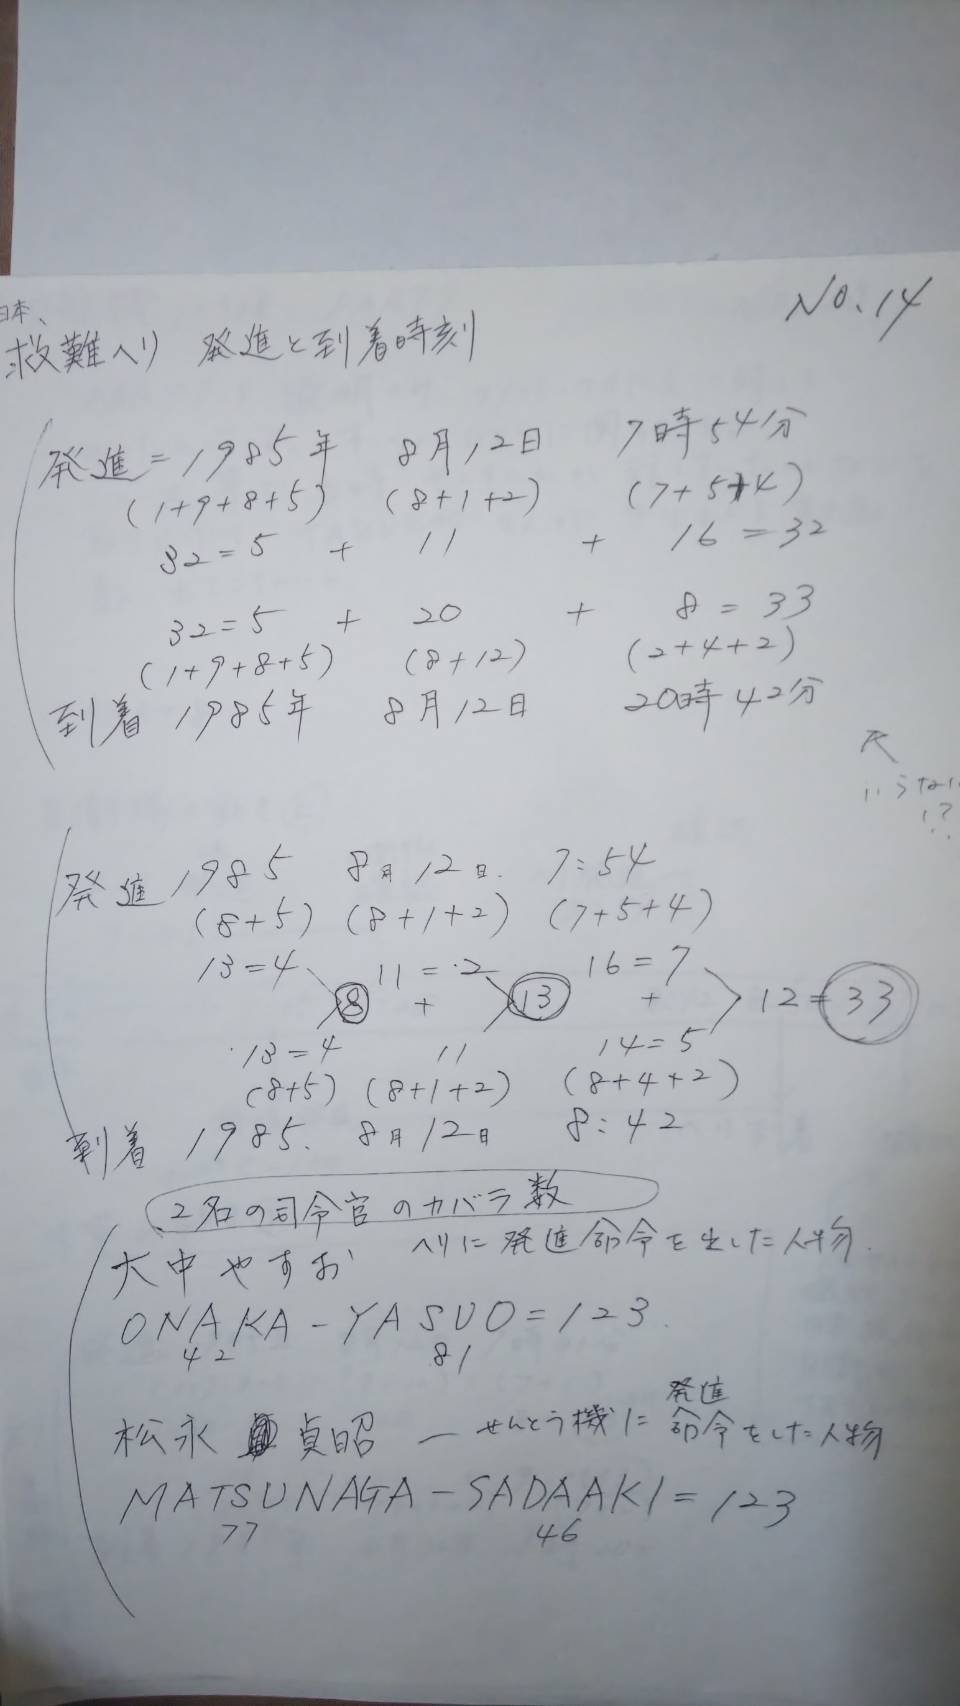 NO.14
日本、
救難ヘリ 発進と到着時刻
発進=1985年 8月12日 7時54分
(1+9+8+5) (8+1+2) (7+5+4)
32=5 + 11 + 16=32
32=5 + 20 + 8=33
(1+9+8+5) (8+12) (2+4+2)
到着 1985年 8月12日 20時42分
いらない
!?
発進 1985 8月12日. 7:54
(8+5) (8+1+2) (7+5+4)
13=4 11=2 16=7
8 + 13 + 12=33
13=4 11 14=5
(8+5) (8+1+2) (8+4+2)
到着 1985. 8月12日 8:42
2名の司令官のカバラ数
大中やすお ヘリに発進命令を出した人物.
ONAKA-YASUO=123.
42 81
発進
松永 貞昭 ― せんとう機に命令をした人物
MATSUNAGA-SADAAKI=123
77 46